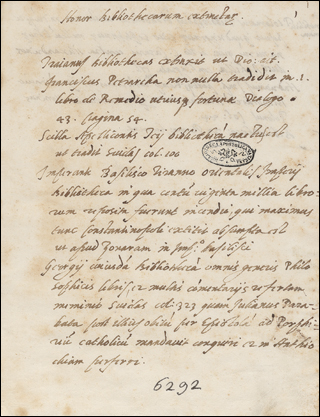 Honor Bibliothecarum
Traianus Bibliothecas extruxit ut Dio: ait.
Franciscus Petrarcha non nulla tradidit in .1.
libro de Remedio utriusq fortunæ Dialogo
43. pagina 54.
ut tradit Suidas col. 100
Imperante Basilisco Tiranno orientalis Imperij
Bibliotheca in qua centũ viginti millia libro-
rum reposita fuerunt incendio, qui maximus
tunc Constantinopoli extitit absumpta est
ut apud Zonaram in Basilisci
Georgij cuiusdã Bibliothecã omnis generis Philo
sophicis libris, et multis comentarijs refertam
meminit Suidas col. 327 quam Julianus
bata post illius obitũ per Epistolã ad Porphi-
riũ catholicũ mandavit conquiri et in Anthio
chiam perferri.
6292